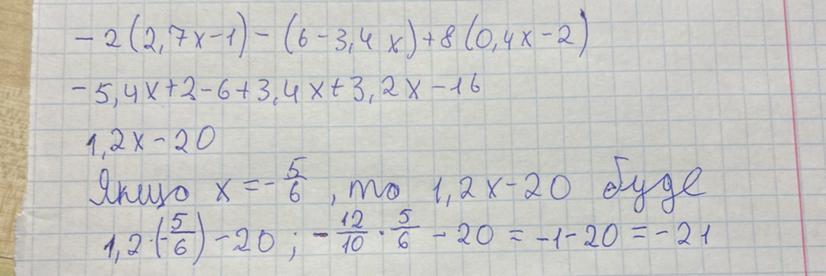 -2(2,7x-1)-(6-3,4x)+8(0,4x-2)
-5,4x+2-6+3,4x+3,2x-16
1,2x-20
Якщо x=-5/6, то 1,2x-20 буде
1,2·(-5/6)-20; -12/10·5/6-20=-1-20=-21